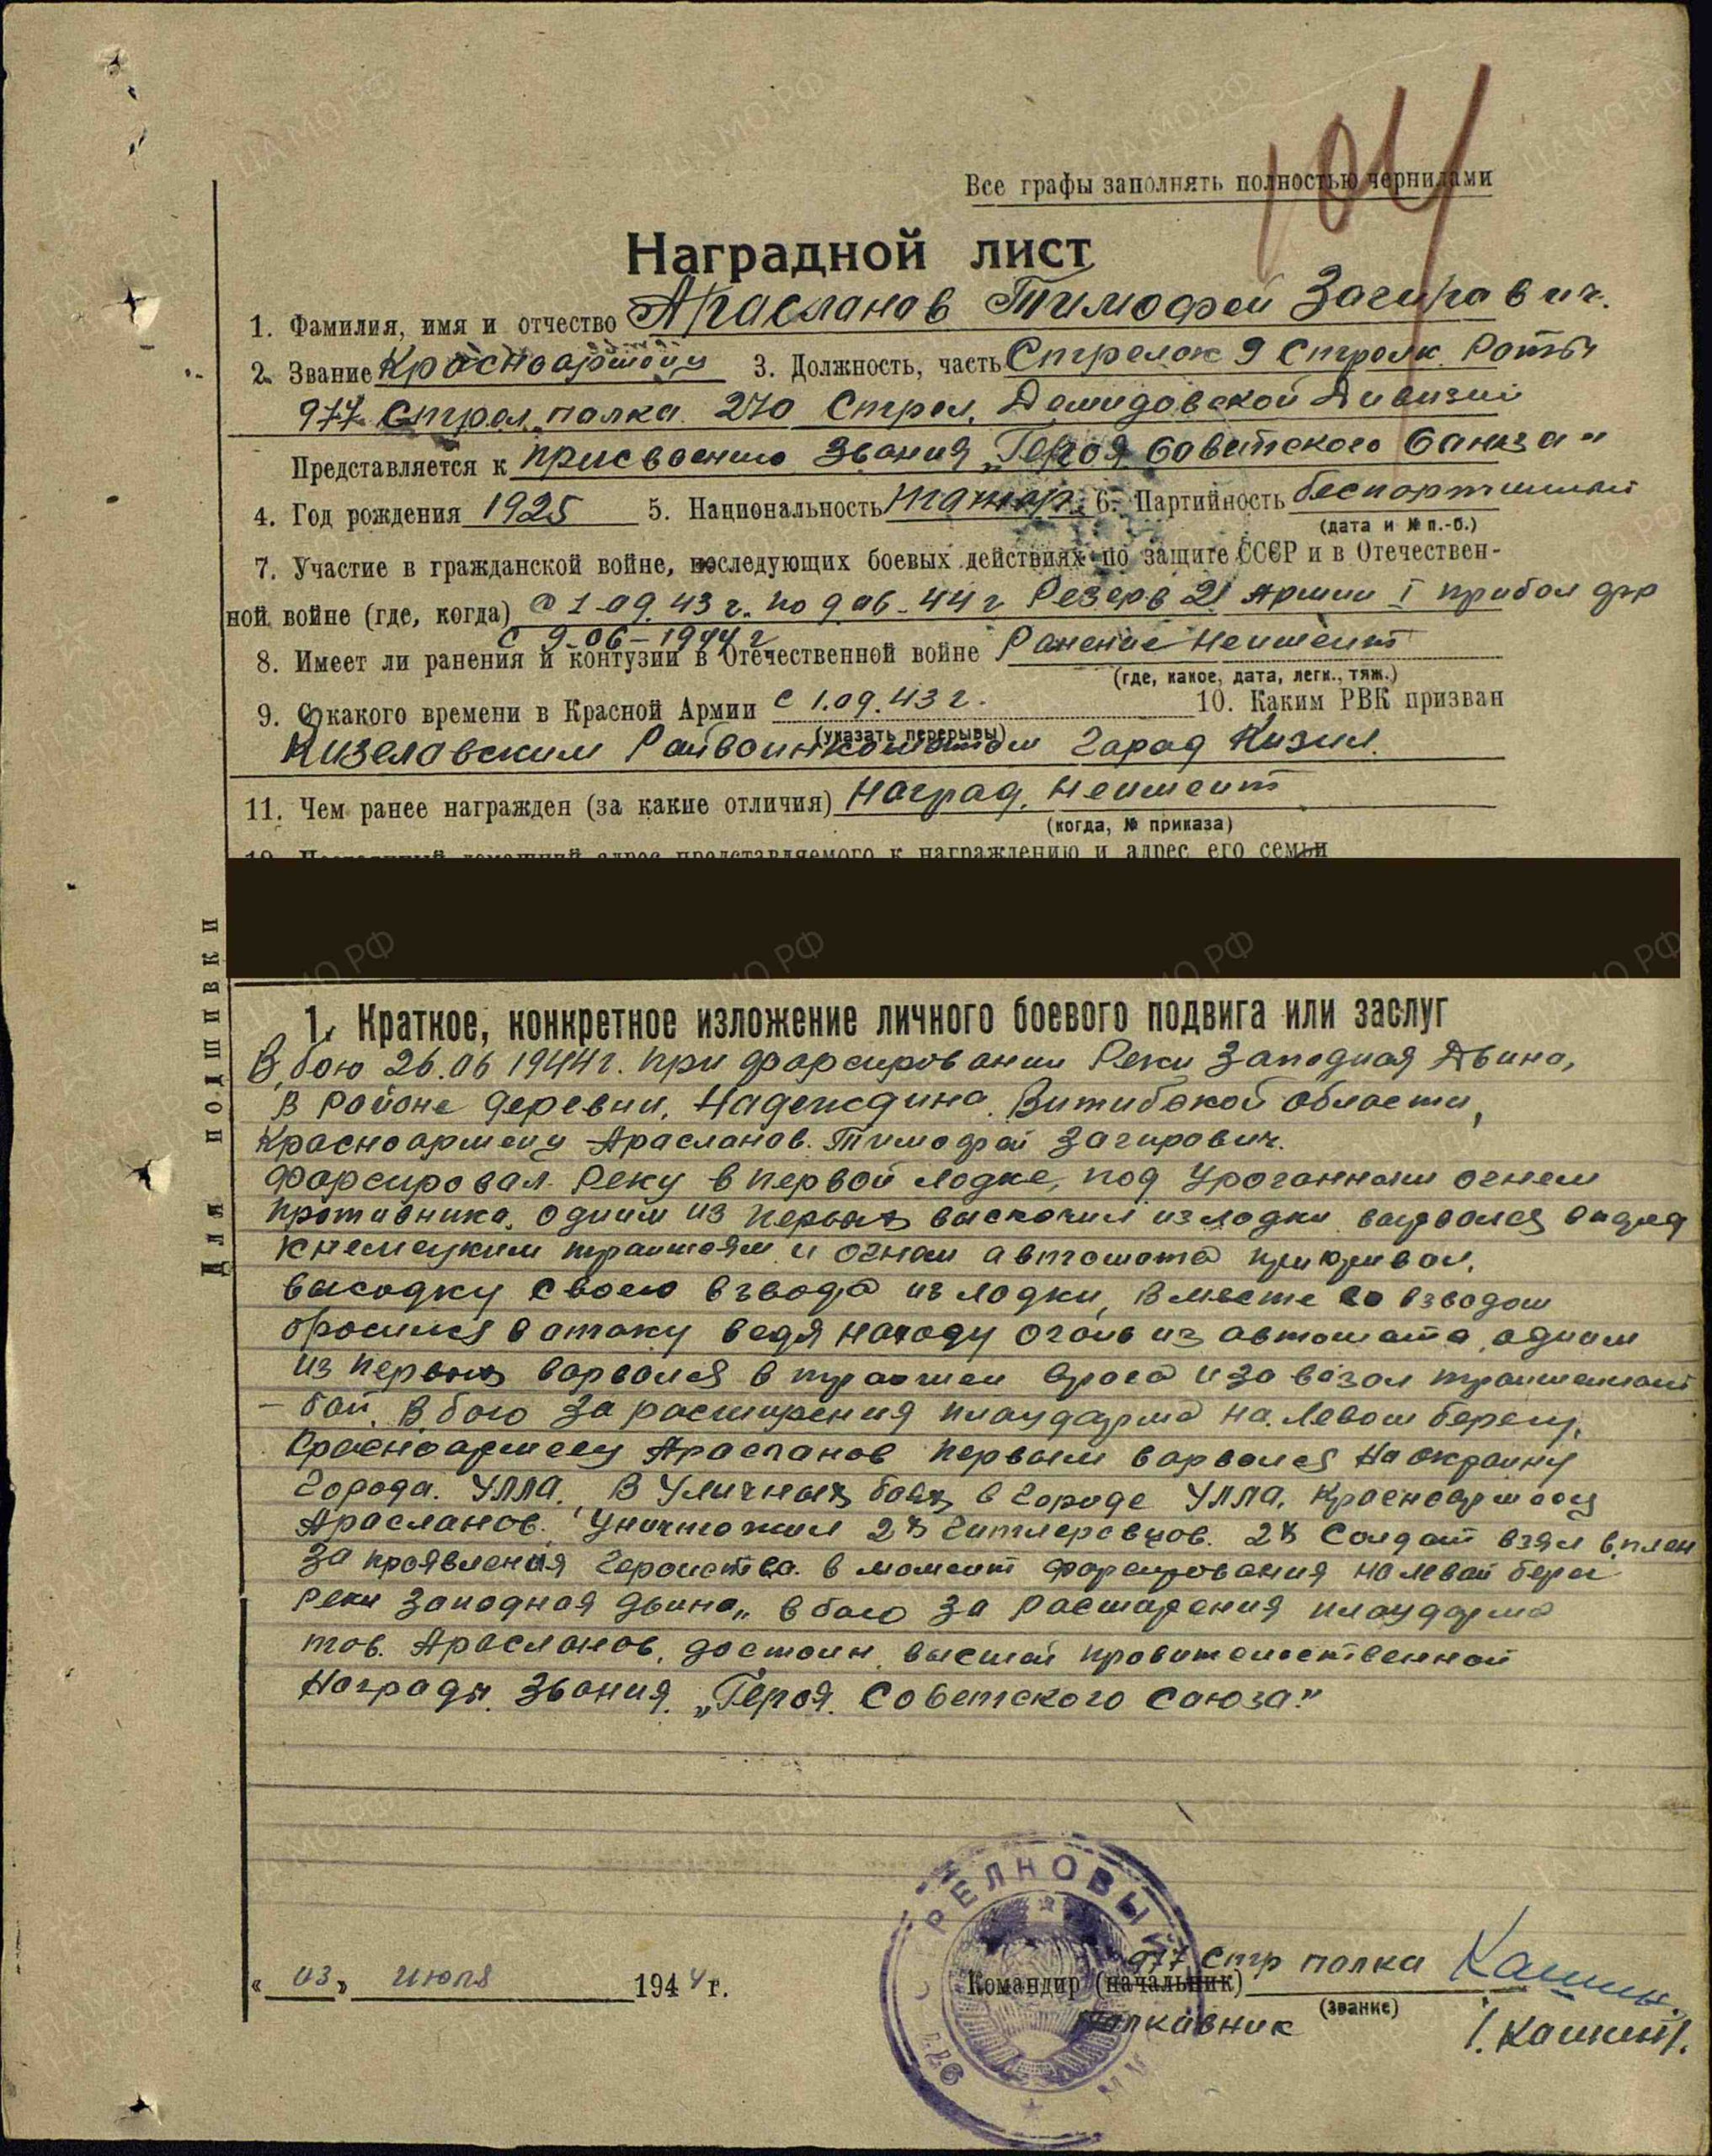 104
Все графы заполнять полностью чернилами
Наградной лист
1. Фамилия, имя и отчество Арасланов Тимофей Загирович.
2. Звание Красноармеец 3. Должность, часть Стрелок 9 Стрелк. Роты
977 Стрел. полка 270 Стрел. Демидовской Дивизии
Представляется к присвоению Звания „Героя Советского Саюза"
4. Год рождения 1925 5. Национальность татар. 6. Партийность беспартийный
(дата и № п.-б.)
7. Участие в гражданской войне, последующих боевых действиях по защите СССР и в Отечествен-
ной войне (где, когда) С 1-09.43 г. по 9 06-44 г Резерв 21 Армии I прибал фр
с 9-06-1944 г
8. Имеет ли ранения и контузии в Отечественной войне Ранение Неимеит
(где, какое, дата, легк., тяж.)
9. С какого времени в Красной Армии с 1.09.43 г. 10. Каким РВК призван
(указать перерывы)
Кизеловским Райвоинкоматом Город Кизил.
11. Чем ранее награжден (за какие отличия) Наград. неимеит
(когда, № приказа)
12. Постоянный домашний адрес представляемого к награждению и адрес его семьи
Для подшивки
1. Краткое, конкретное изложение личного боевого подвига или заслуг
В бою 26.06 1944 г. при форсировании Реки Западная Двина,
в районе деревни, Надеждино. Витибской области,
Красноармеец Арасланов. Тимофей Загирович.
форсировал Реку в первой лодке, под Ураганным огнем
противника. одним из первых выскочил из лодки вырвался вперед
к немецким траншеям и огнем автомата прикривал,
высадку своего взвода из лодки, Вместе со взводом
бросился в атаку ведя находу огонь из автомата, одним
из первых ворвался в траншеи врага изавезал траншейный
- бой. В бою За расширения плацдарма на Левом берегу,
Красноармеец Арасланов первым ворвался На окраину
Города. УЛЛА. В Уличных боях в городе УЛЛА, Красноармеец
Арасланов. Уничтожил 2х Гитлеровцов. 2х Солдат взял в плен
За проявления Героиства. в момент форсирования на левай берег
реки Западная Двина„ в бою За расширения плацдарма
тов. Арасланов, достоин высшей правительственной
Награды. Звания. „Героя. Советского Союза."
„03„ июля 1944 г.
977 Стр полка Кашин
Командир (начальник)
(звание)
Палкавник /. Кашин /.
СТРЕЛКОВЫЙ
977